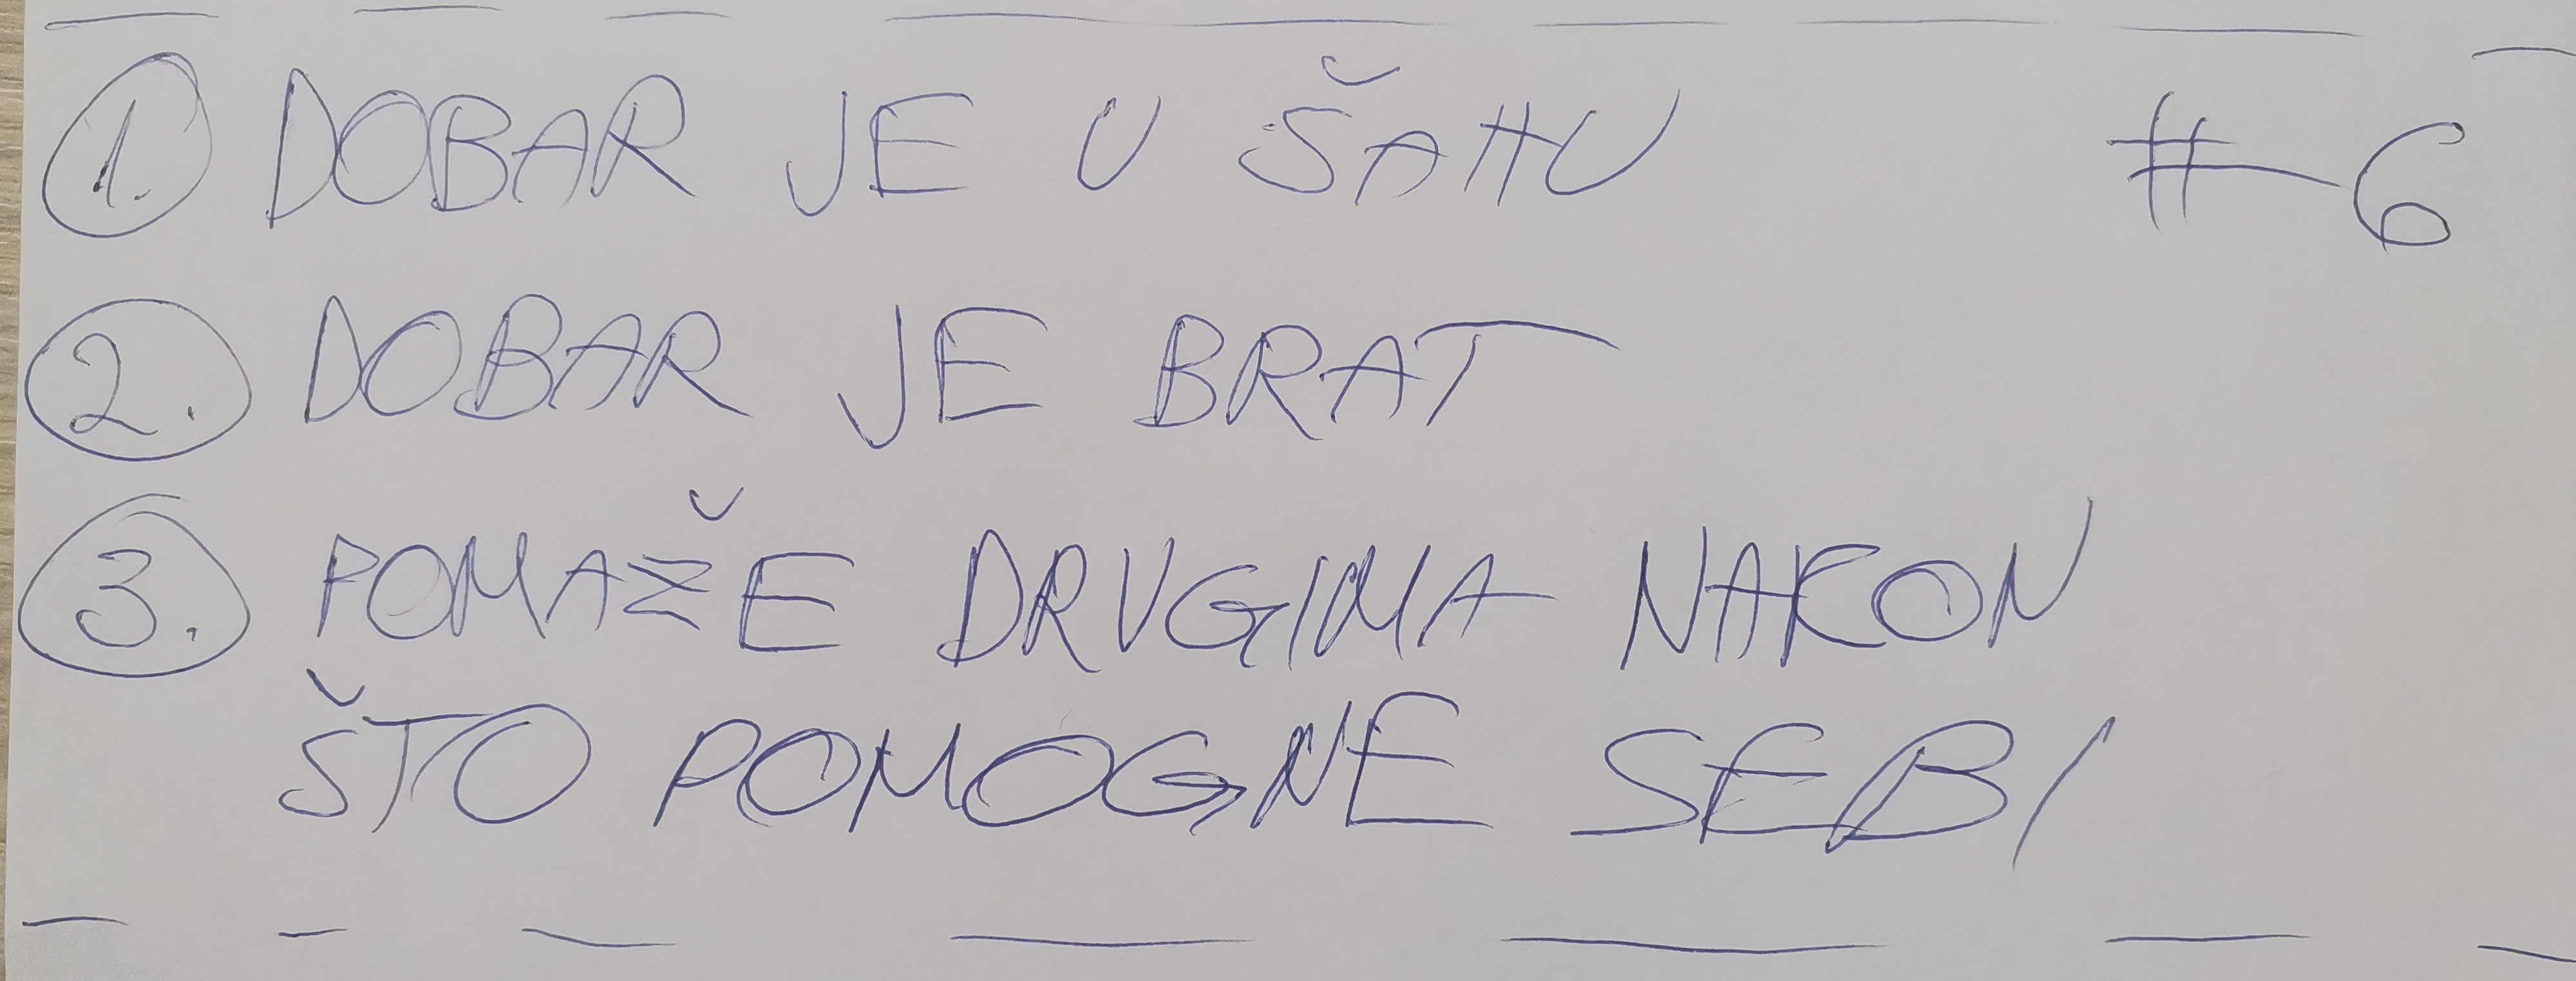 1. DOBAR JE U ŠAHU #6
2. DOBAR JE BRAT
3. POMAŽE DRUGIMA NAKON
ŠTO POMOGNE SEBI